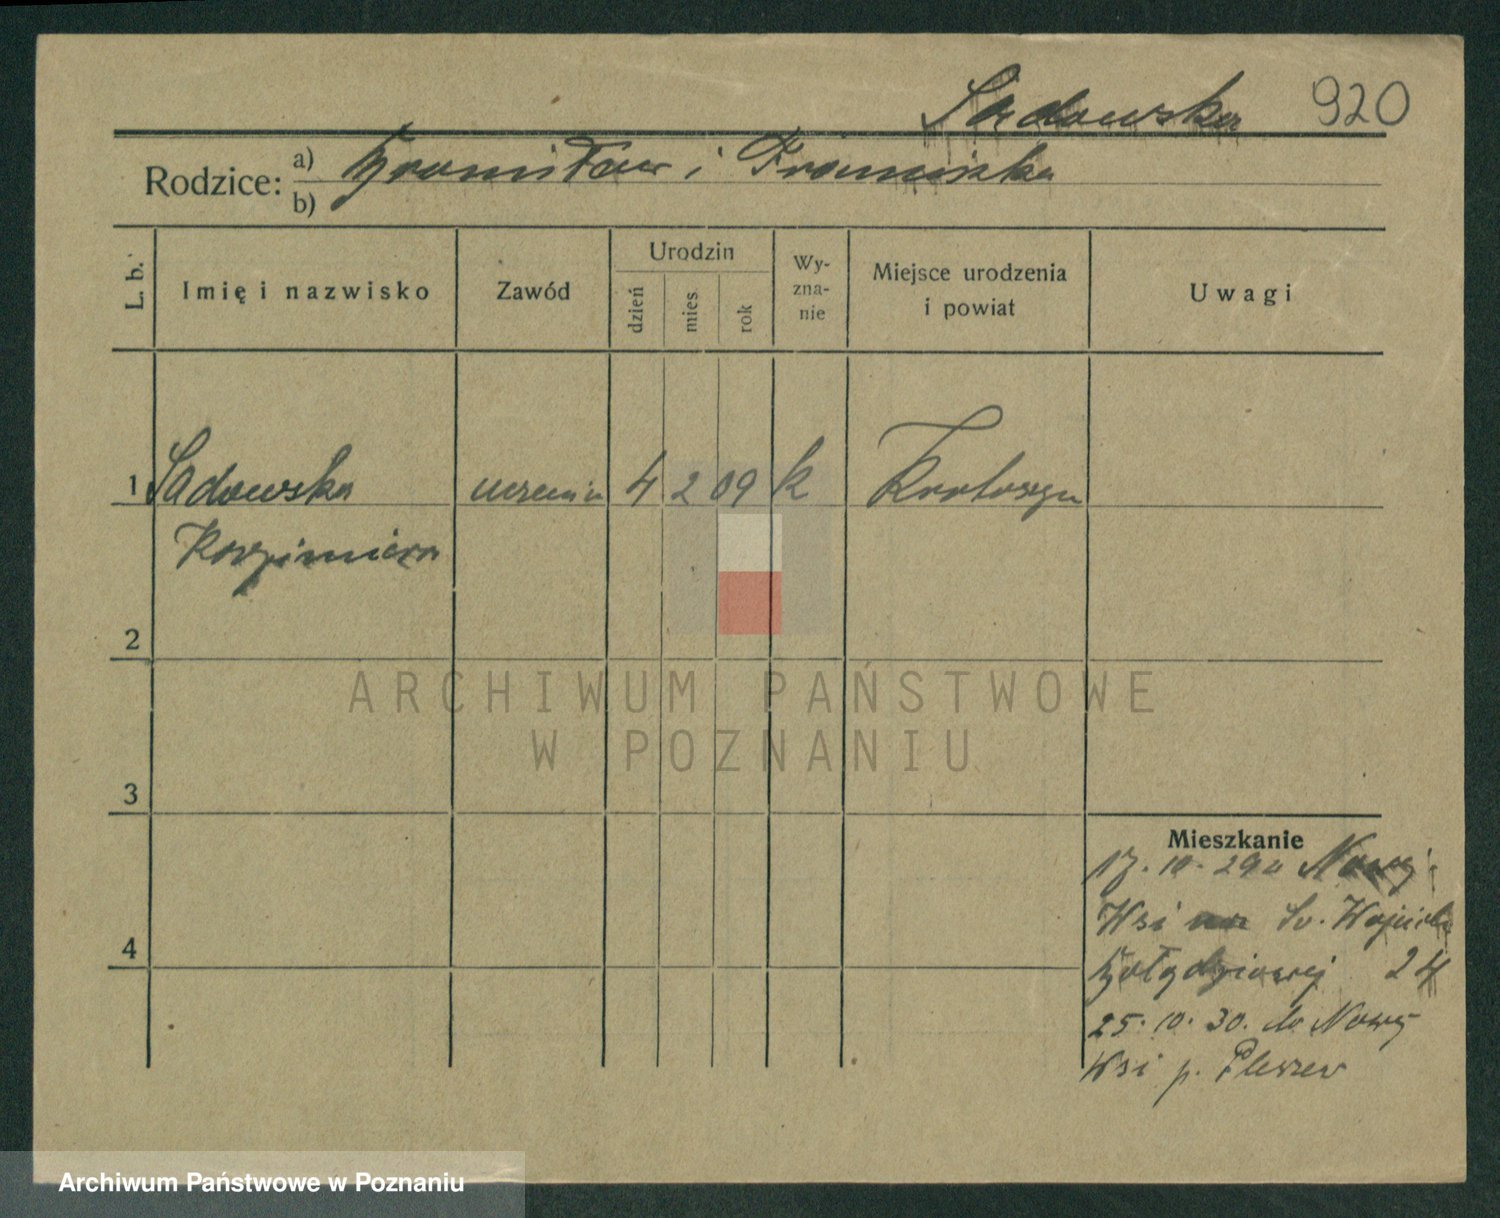 Sadowska 920
Rodzice: a) Bronisław i Franciszka
b)
L. b.
Imię i nazwisko
Zawód
Urodzin
dzień
mies.
rok
Wy-
zna-
nie
Miejsce urodzenia
i powiat
Uwagi
1 Sadowska uczenica 4 2 09 k Krotoszyn
Kazimiera
2
3
4
Mieszkanie
17. 10. 29 Nowej
Wsi Św. Wojciech
24
25. 10. 30. do Nowej
Wsi p. Pleszew
ARCHIWUM PAŃSTWOWE
W POZNANIU
Archiwum Państwowe w Poznaniu